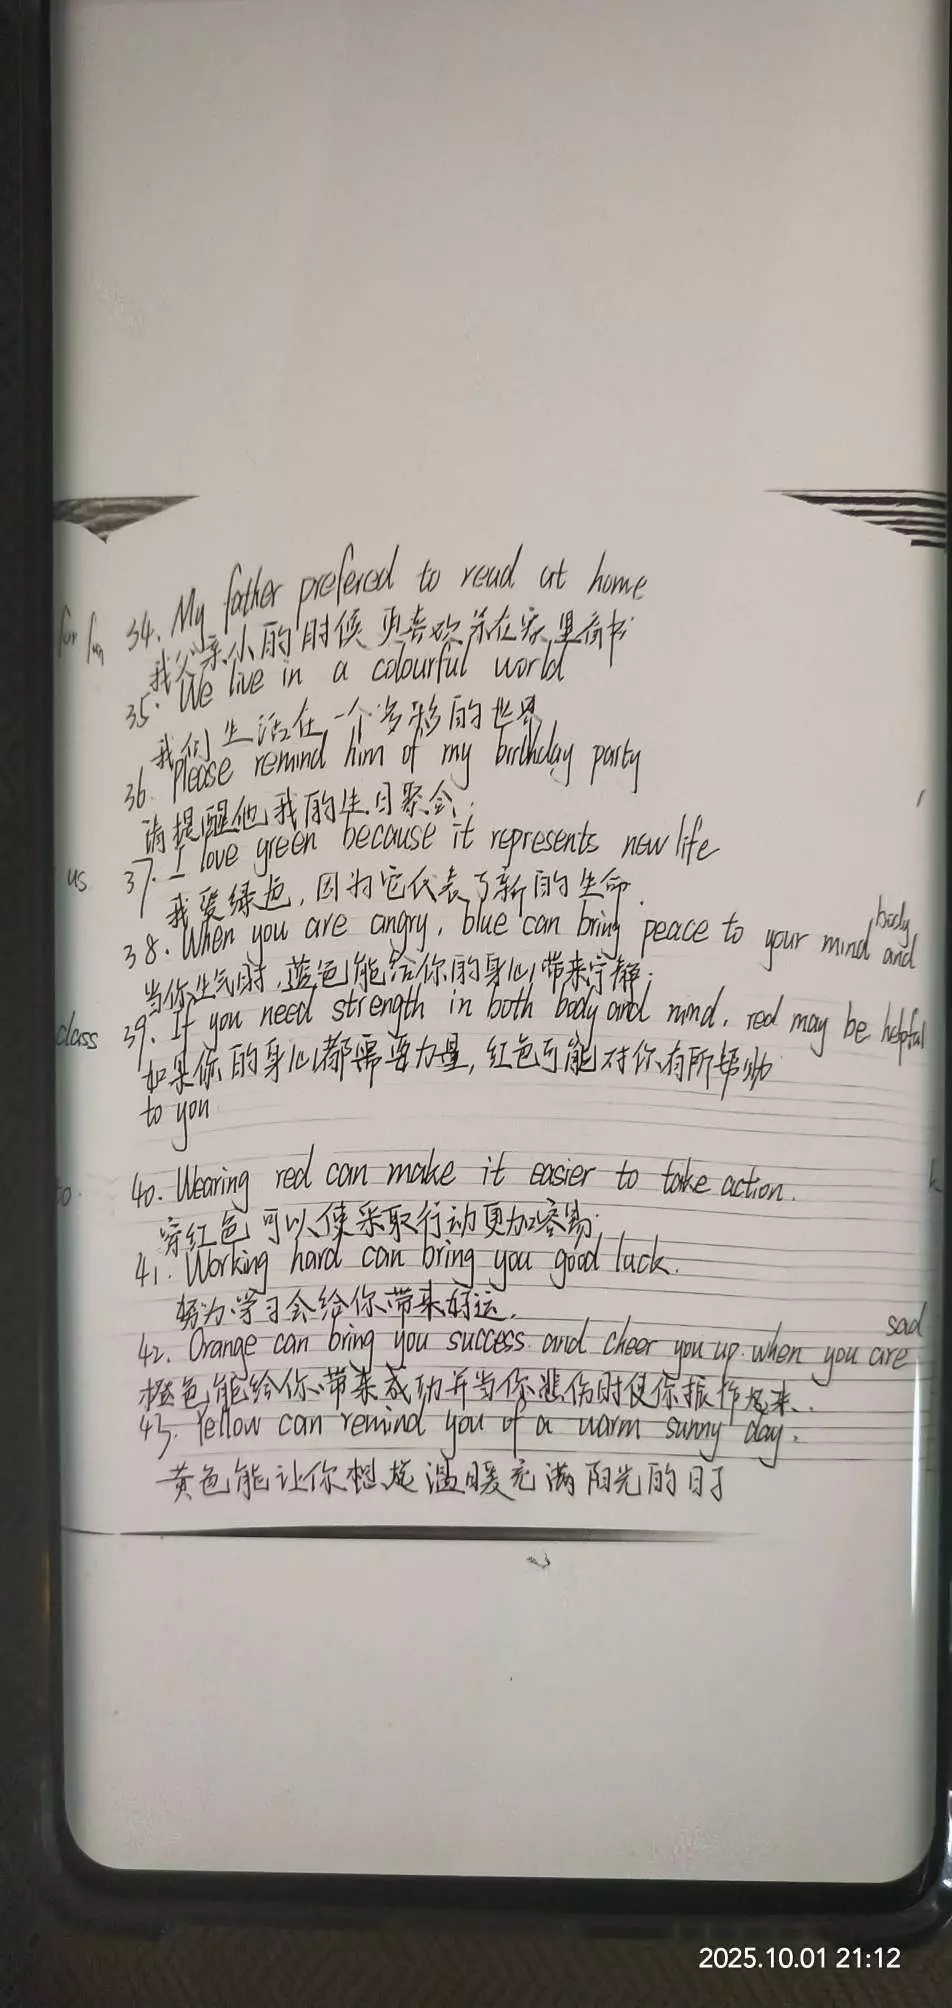 for fun
34. My father prefered to read at home
我父亲小的时候更喜欢在家里看书
35. We live in a colourful world
我们生活在一个多彩的世界
36. Please remind him of my birthday party
请提醒他我的生日聚会.
us
37. I love green because it represents new life
我爱绿色，因为它代表了新的生命.
38. When you are angry, blue can bring peace to your mind and body
当你生气时,蓝色能给你的身心带来宁静.
class
39. If you need strength in both body and mind, red may be helpful
如果你的身心都需要力量,红色可能对你有所帮助
to you
to.
40. Wearing red can make it easier to take action.
穿红色可以使采取行动更加容易.
41. Working hard can bring you good luck.
努力学习会给你带来好运.
42. Orange can bring you success and cheer you up when you are sad
橙色能给你带来成功并当你悲伤时使你振作起来.
43. Yellow can remind you of a warm sunny day.
黄色能让你想起温暖充满阳光的日子
2025.10.01 21:12